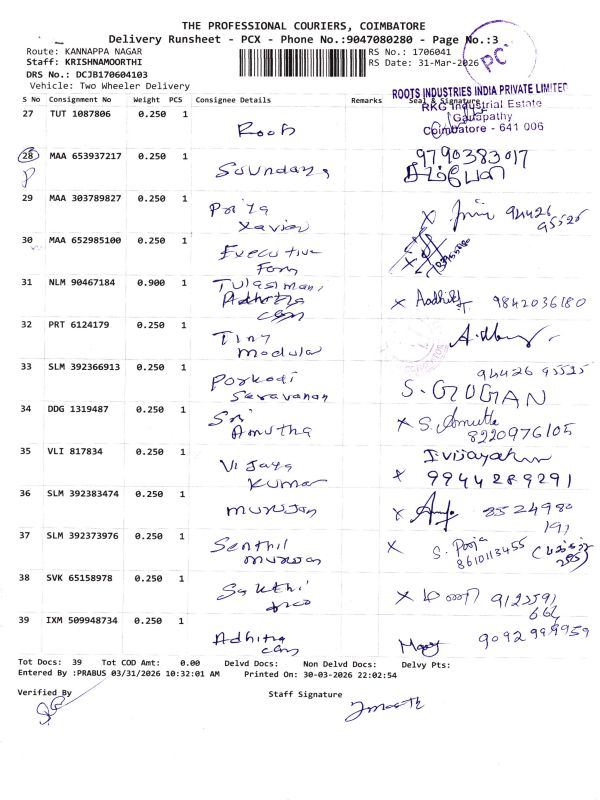 THE PROFESSIONAL COURIERS, COIMBATORE
Delivery Runsheet - PCX - Phone No.:9047080280 - Page No.:3
Route: KANNAPPA NAGAR RS No.: 1706041
Staff: KRISHNAMOORTHI RS Date: 31-Mar-2026
DRS No.: DCJB170604103
Vehicle: Two Wheeler Delivery
PC
ROOTS INDUSTRIES INDIA PRIVATE LIMITED
RKG Industrial Estate
Ganapathy
Coimbatore - 641 006
S No Consignment No Weight PCS Consignee Details Remarks Seal & Signature
27 TUT 1087806 0.250 1 Roots
28 MAA 653937217 0.250 1 Soundarya 9790383017
29 MAA 303789827 0.250 1 Priya Xavier X 94426 95525
30 MAA 652985100 0.250 1 Executive Form
31 NLM 90467184 0.900 1 Tulasimani Adhithya X Aadhith 9842036180
32 PRT 6124179 0.250 1 Tiny Modular
33 SLM 392366913 0.250 1 Porkodi Saravanan 94426 95525 S. GUGAN
34 DDG 1319487 0.250 1 Sri Amutha X S. Amutha 8220976105
35 VLI 817834 0.250 1 Vijaya Kumar X 9944289291
36 SLM 392383474 0.250 1 Murugan X 8524980 191
37 SLM 392373976 0.250 1 Senthil Murugan X S. Pooja 8610113455
38 SVK 65158978 0.250 1 Sakthi X மணி 9123591 664
39 IXM 509948734 0.250 1 Adhitya 9092999959
Tot Docs: 39 Tot COD Amt: 0.00 Delvd Docs: Non Delvd Docs: Delvy Pts:
Entered By :PRABUS 03/31/2026 10:32:01 AM Printed On: 30-03-2026 22:02:54
Verified By Staff Signature